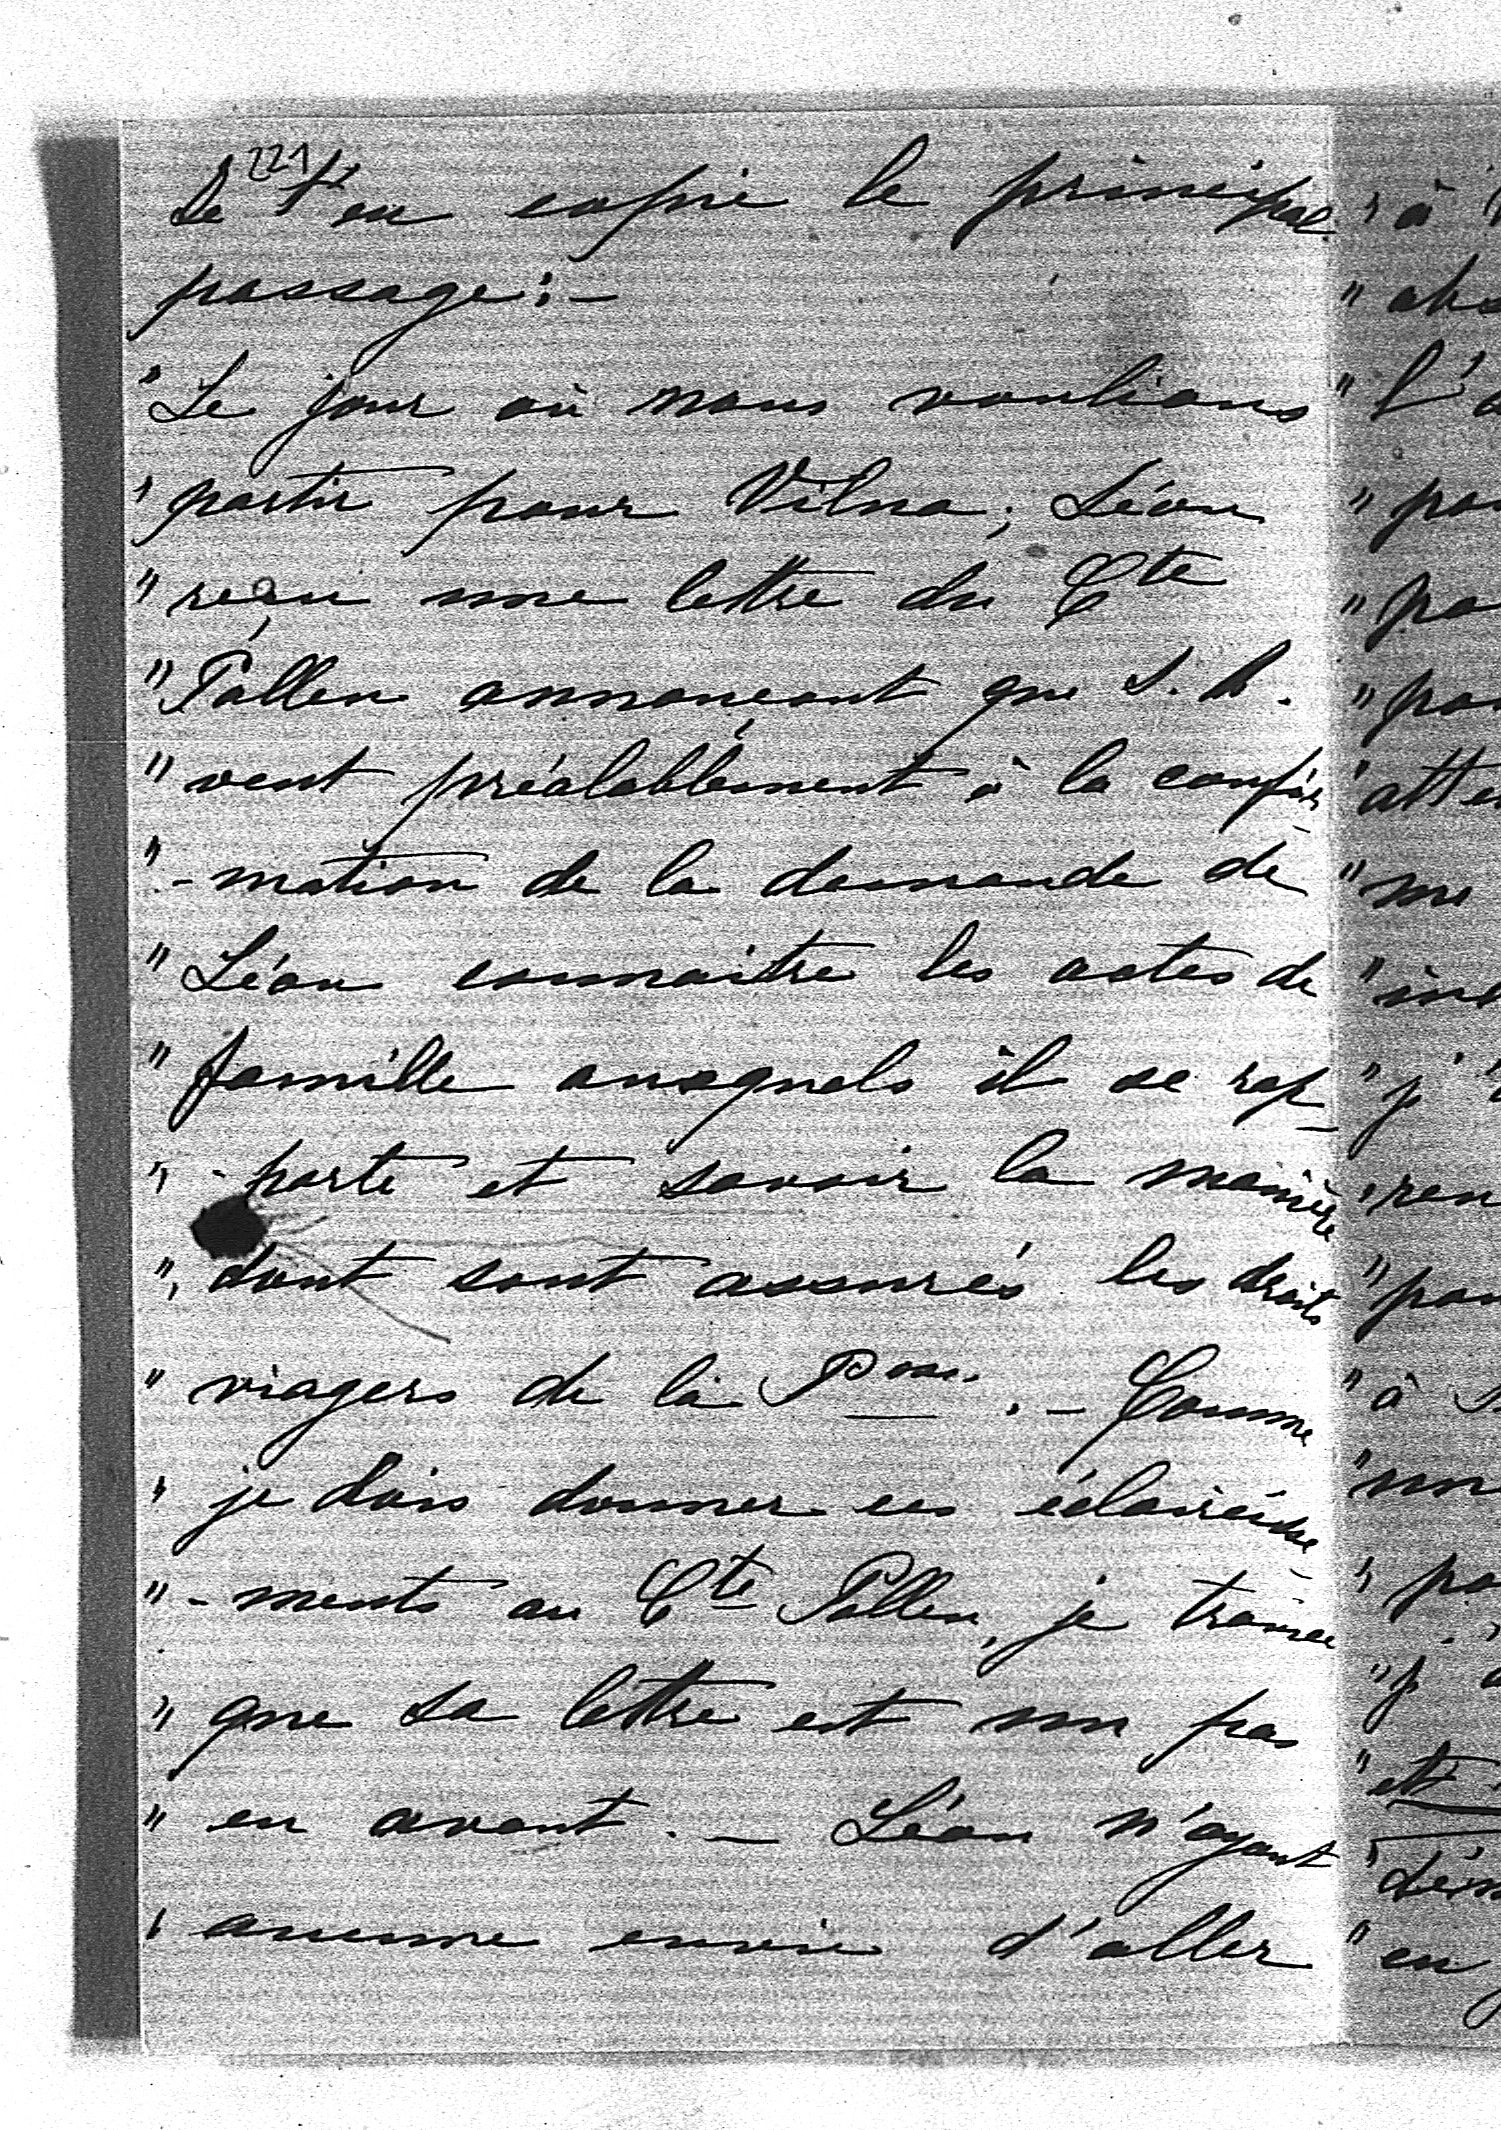 221
Je t'en copie le principal
passage:-
"Le jour où nous voulions
" partir pour Vilna, Léon
" reçu une lettre du Cte
" Pallen annonçant que S. M.
" veut préalablement à la confir
" -mation de la demande de
" Léon connaitre les actes de
" famille auxquels il se rap-
" -porte et savoir la manière
" dont sont assurés les droits
" viagers de la Pcesse. - Comme
" je dois donner ces éclaircisse-
" -ments au Cte Pallen, je trouve
" que sa lettre est un pas
" en avant. - Léon n'ayant
" aucune envie d'aller